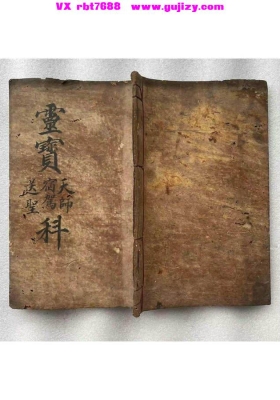 VX rbt7688 www.gujizy.com
靈寶科
天師
宿駕
送聖